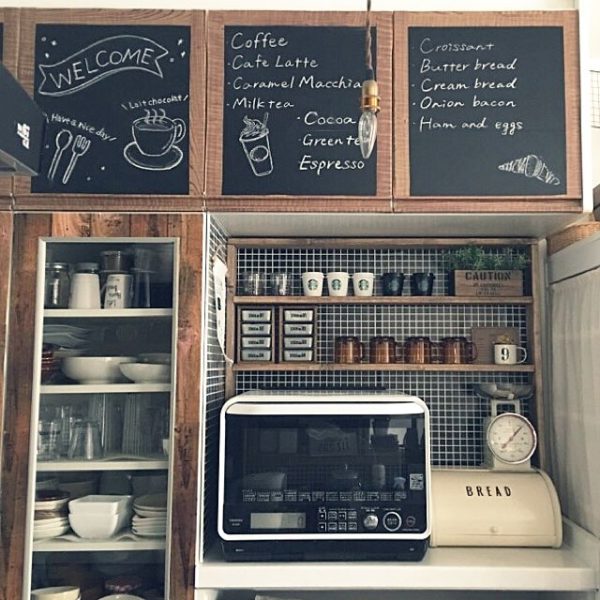 WELCOME
Have a nice day!
Lait chocolat
Coffee
· Cafe Latte
· Caramel Macchia
· Milk tea
· Cocoa
· Green te
Espresso
· Croissant
· Butter bread
· Cream bread
· Onion bacon
· Ham and eggs
CAUTION
9
BREAD